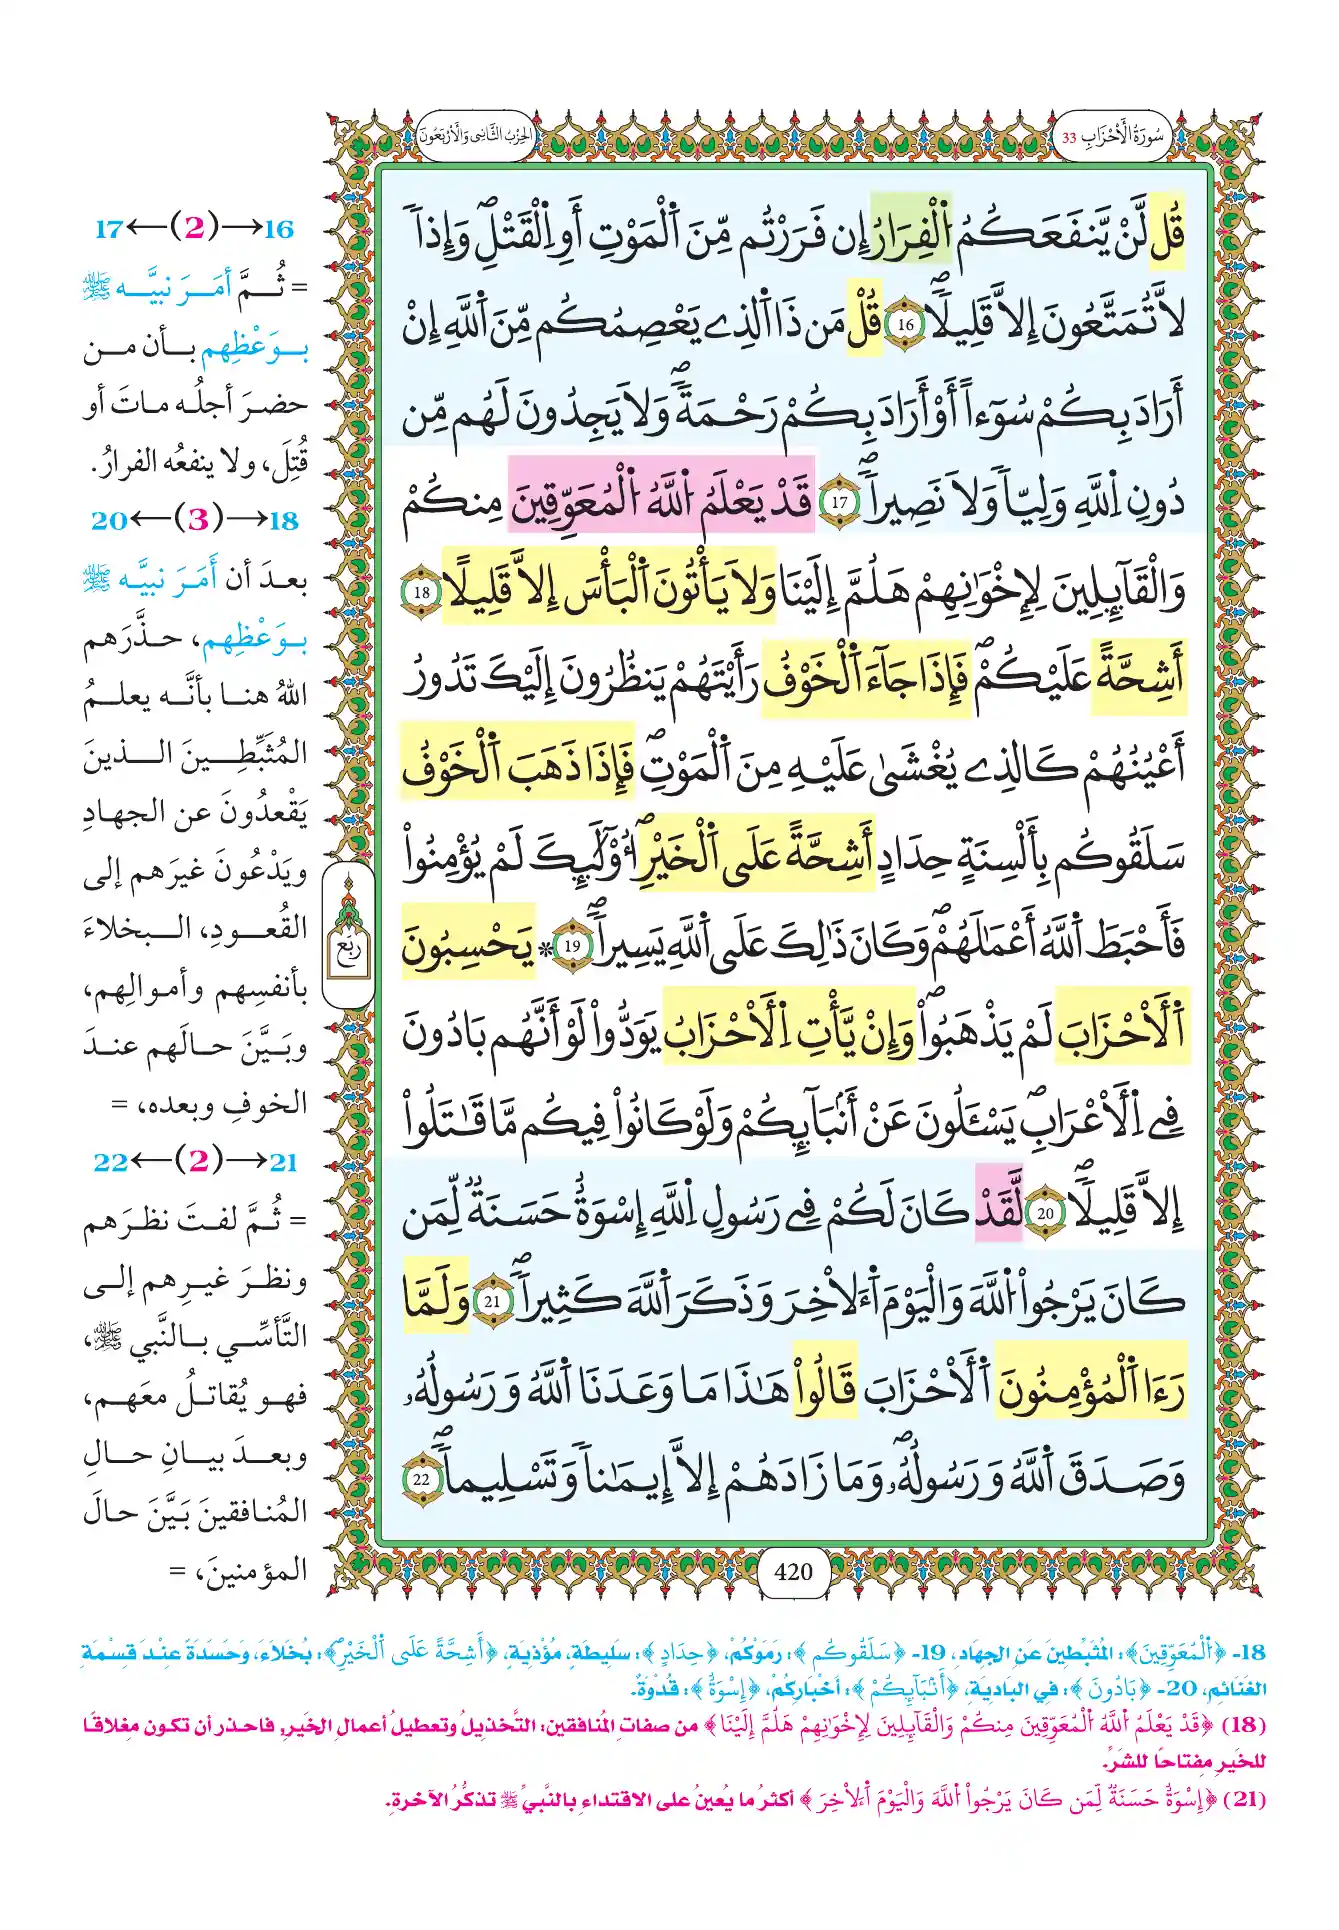 سُورَةُ الْأَحْزَابِ 33
الحِزْبُ الثَّانِي وَالْأَرْبَعُونَ
قُل لَّنْ يَّنفَعَكُمُ اُ۬لْفِرَارُ إِن فَرَرْتُم مِّنَ اَ۬لْمَوْتِ أَوِ اِ۬لْقَتْلِۖ وَإِذاٗ
لَّا تُمَتَّعُونَ إِلَّا قَلِيلاٗۖ 16 قُلْ مَن ذَا اَ۬لذِے يَعْصِمُكُم مِّنَ اَ۬للَّهِ إِنْ
أَرَادَ بِكُمْ سُوٓءاً أَوْ أَرَادَ بِكُمْ رَحْمَةٗۖ وَلَا يَجِدُونَ لَهُم مِّن
دُونِ اِ۬للَّهِ وَلِيّاٗ وَلَا نَصِيراٗۖ 17 قَدْ يَعْلَمُ اُ۬للَّهُ اُ۬لْمُعَوِّقِينَ مِنكُمْ
وَالْقَآئِلِينَ لِإِخْوَٰنِهِمْ هَلُمَّ إِلَيْنَا وَلَا يَأْتُونَ اَ۬لْبَأْسَ إِلَّا قَلِيلًا 18
أَشِحَّةً عَلَيْكُمْۖ فَإِذَا جَآءَ اَ۬لْخَوْفُ رَأَيْتَهُمْ يَنظُرُونَ إِلَيْكَ تَدُورُ
أَعْيُنُهُمْ كَالذِے يُغْشَىٰ عَلَيْهِ مِنَ اَ۬لْمَوْتِۖ فَإِذَا ذَهَبَ اَ۬لْخَوْفُ
سَلَقُوكُم بِأَلْسِنَةٍ حِدَادٍ أَشِحَّةً عَلَى اَ۬لْخَيْرِۖ أُوْلَٰٓئِكَ لَمْ يُؤْمِنُواْ
فَأَحْبَطَ اَ۬للَّهُ أَعْمَٰلَهُمْۖ وَكَانَ ذَٰلِكَ عَلَى اَ۬للَّهِ يَسِيراٗۖ 19 * يَحْسِبُونَ
اَ۬لْأَحْزَابَ لَمْ يَذْهَبُواْۖ وَإِنْ يَّأْتِ اِ۬لْأَحْزَابُ يَوَدُّواْ لَوْ أَنَّهُم بَادُونَ
فِے اِ۬لْأَعْرَابِۖ يَسْـَٔلُونَ عَنْ أَنۢبَآئِكُمْ وَلَوْ كَانُواْ فِيكُم مَّا قَٰتَلُواْ
إِلَّا قَلِيلاٗۖ 20 لَّقَدْ كَانَ لَكُمْ فِے رَسُولِ اِ۬للَّهِ إِسْوَةٌ حَسَنَةٞ لِّمَن
كَانَ يَرْجُواْ اُ۬للَّهَ وَالْيَوْمَ اَ۬لْأٓخِرَ وَذَكَرَ اَ۬للَّهَ كَثِيراٗۖ 21 وَلَمَّا
رَءَا اَ۬لْمُؤْمِنُونَ اَ۬لْأَحْزَابَ قَالُواْ هَٰذَا مَا وَعَدَنَا اَ۬للَّهُ وَرَسُولُهُۥ
وَصَدَقَ اَ۬للَّهُ وَرَسُولُهُۥۖ وَمَا زَادَهُمْ إِلَّا إِيمَٰناٗ وَتَسْلِيماٗۖ 22
رُبُع
420
17←(2)→16
= ثُمَّ أمَرَ نبيَّه ﷺ
بوَعْظِهم بأن من
حضرَ أجلُه ماتَ أو
قُتِلَ، ولا ينفعُه الفرارُ.
20←(3)→18
بعدَ أن أمَرَ نبيَّه ﷺ
بوَعْظِهم، حذَّرَهم
اللهُ هنا بأنَّه يعلمُ
المُثبِّطِينَ الذينَ
يَقْعدُونَ عن الجهادِ
ويَدْعُونَ غيرَهم إلى
القُعودِ، البخلاءَ
بأنفسِهم وأموالِهم،
وبَيَّنَ حالَهم عندَ
الخوفِ وبعده، =
22←(2)→21
= ثُمَّ لفتَ نظرَهم
ونظرَ غيرِهم إلى
التَّأسِّي بالنَّبي ﷺ،
فهو يُقاتلُ معَهم،
وبعدَ بيانِ حالِ
المُنافقينَ بَيَّنَ حالَ
المؤمنينَ، =
18- ﴿اُ۬لْمُعَوِّقِينَ﴾: المُثبِّطِينَ عَنِ الجِهَادِ، 19- ﴿سَلَقُوكُم﴾: رَمَوْكُمْ، ﴿حِدَادٍ﴾: سَلِيطَةٍ، مُؤْذِيةٍ، ﴿أَشِحَّةً عَلَى اَ۬لْخَيْرِۖ﴾: بُخَلَاءَ، وَحَسَدَةً عِنْدَ قِسْمَةِ
الغَنَائِمِ، 20- ﴿بَادُونَ﴾: في البَادِيَةِ، ﴿أَنۢبَآئِكُمْ﴾: أخْبَارِكُمْ، ﴿إِسْوَةٌ﴾: قُدْوَةٌ.
(18) ﴿قَدْ يَعْلَمُ اُ۬للَّهُ اُ۬لْمُعَوِّقِينَ مِنكُمْ وَالْقَآئِلِينَ لِإِخْوَٰنِهِمْ هَلُمَّ إِلَيْنَا﴾ من صفاتِ المُنافقين: التَّخذيلُ وتعطيلُ أعمالِ الخَيرِ، فاحذر أن تكون مغلاقًا
للخَيرِ مِفتاحًا للشرِّ.
(21) ﴿إِسْوَةٌ حَسَنَةٞ لِّمَن كَانَ يَرْجُواْ اُ۬للَّهَ وَالْيَوْمَ اَ۬لْأٓخِرَ﴾ أكثرُ ما يُعينُ على الاقتداءِ بالنَّبيِّ ﷺ تذكُّرُ الآخرةِ.